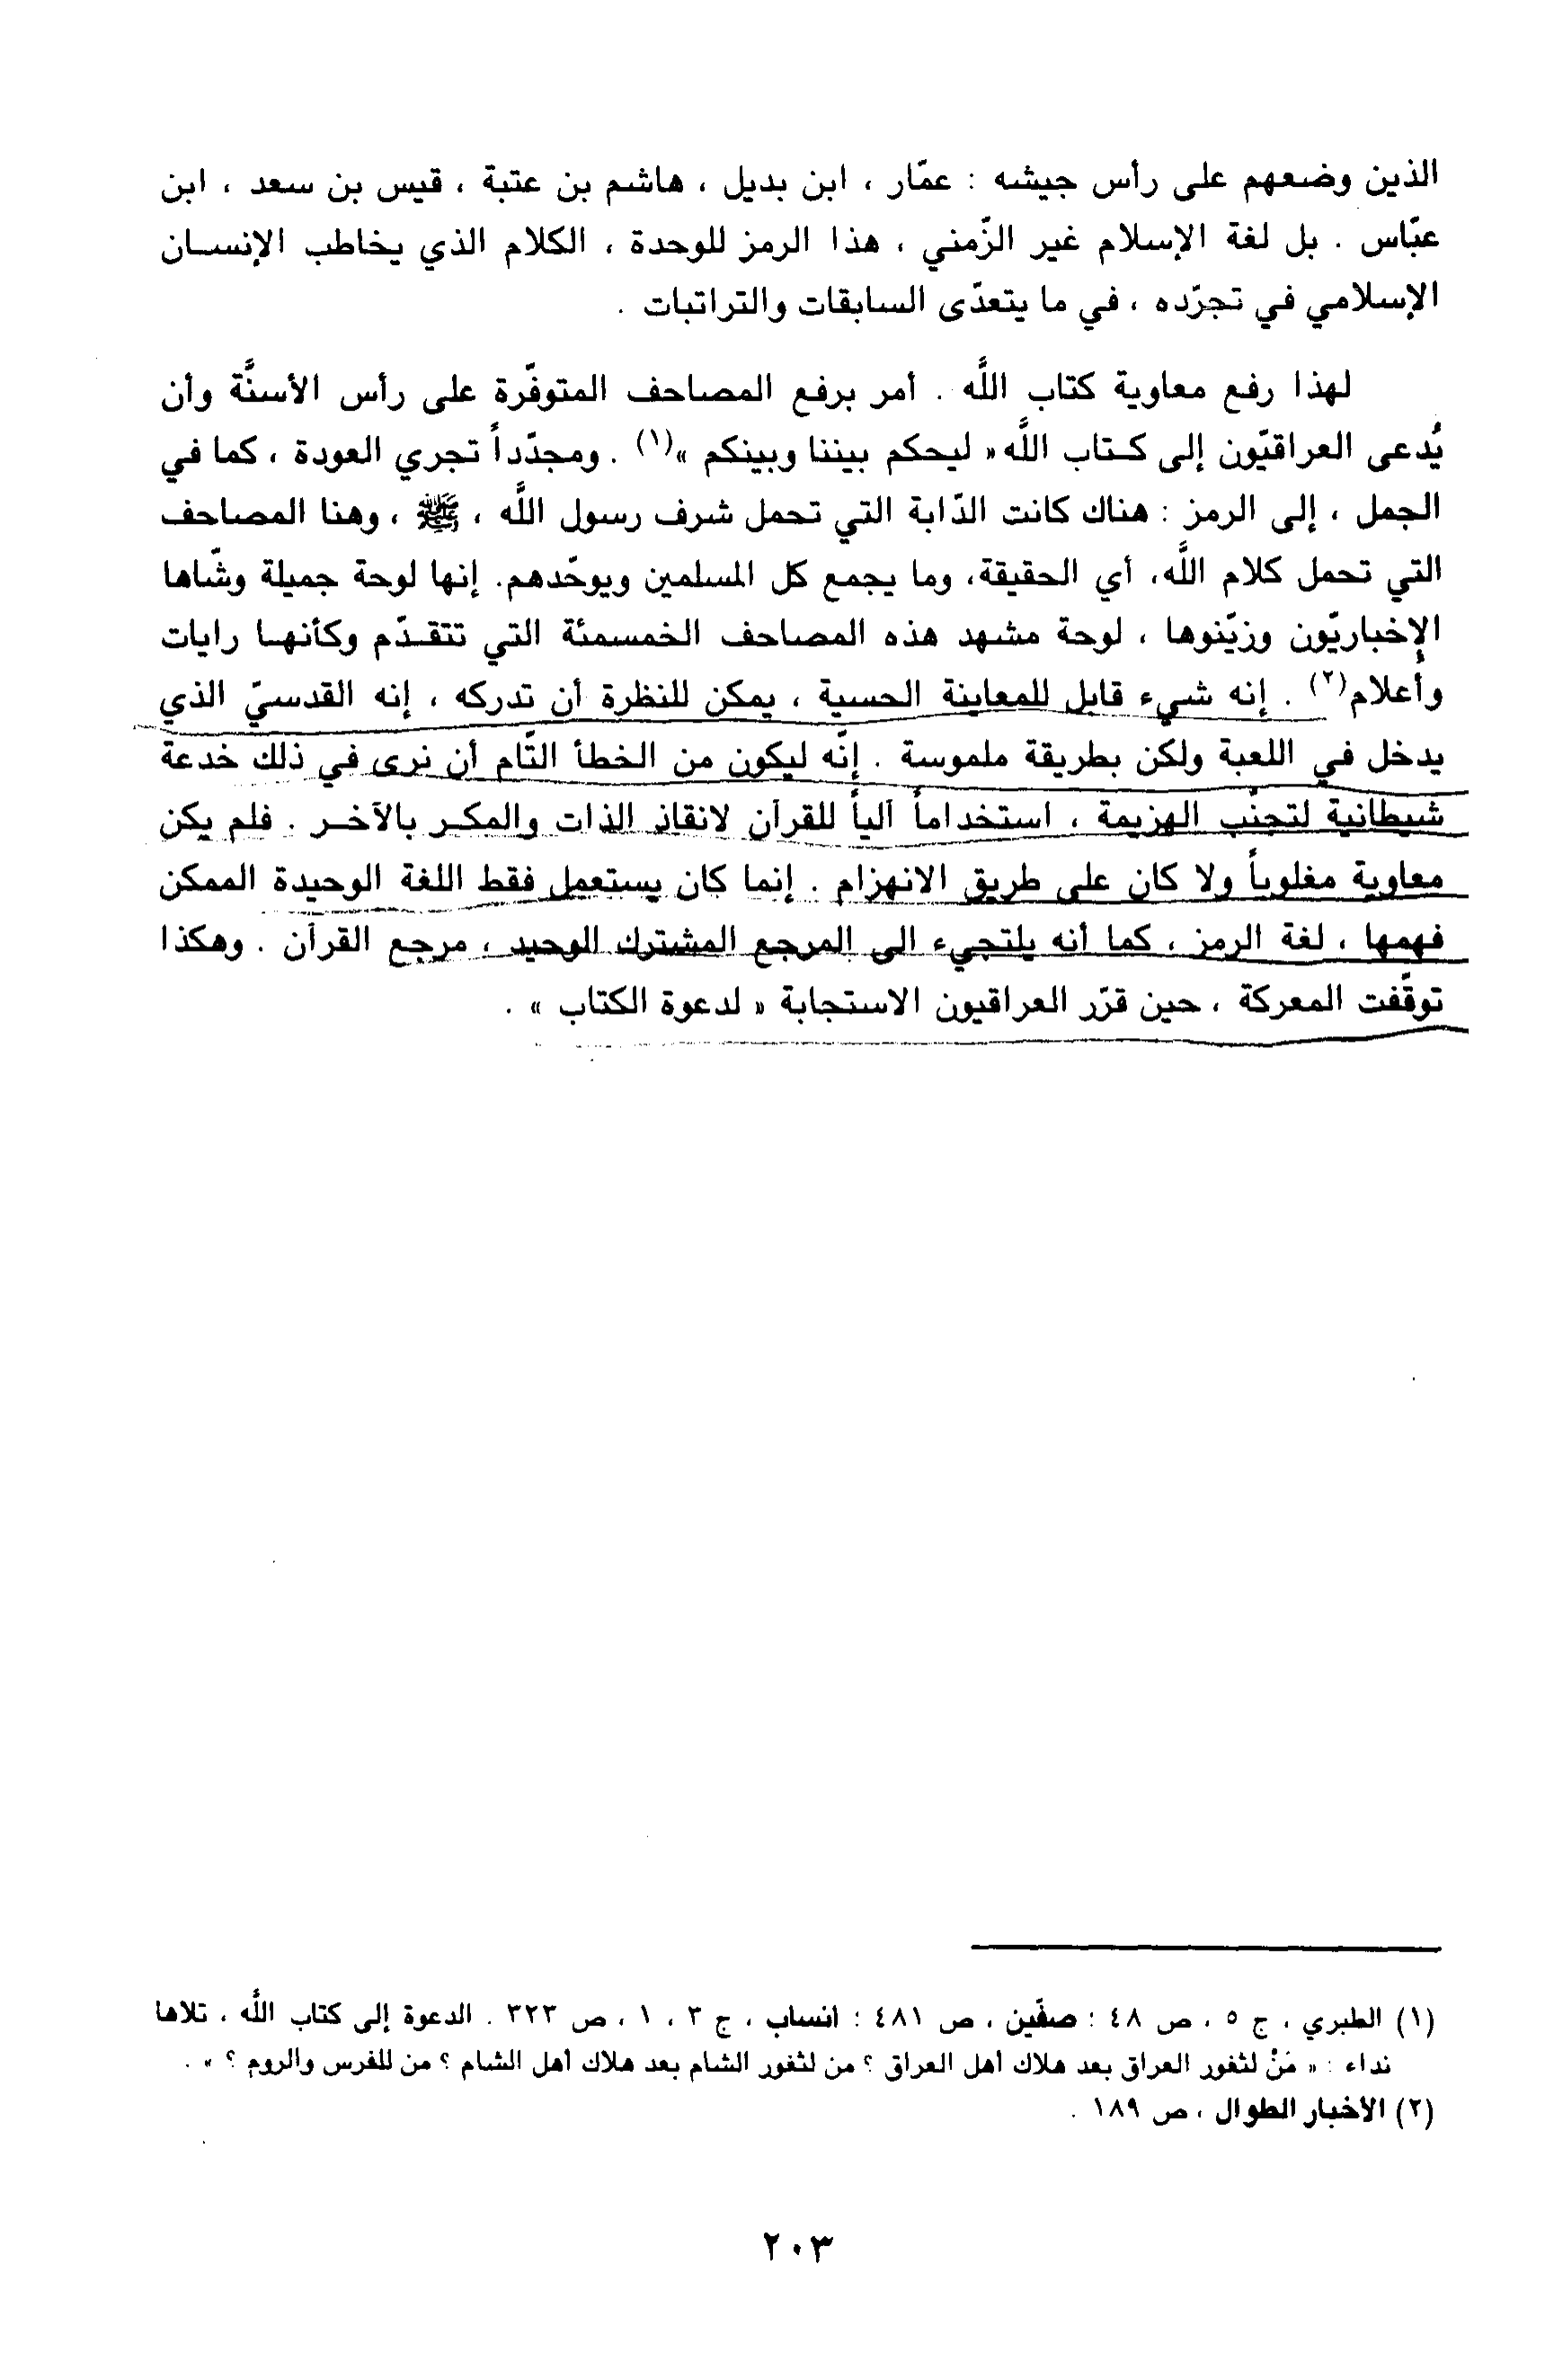 الذين وضعهم على رأس جيشه : عمّار ، ابن بديل ، هاشم بن عتبة ، قيس بن سعد ، ابن
عبّاس . بل لغة الإسلام غير الزّمني ، هذا الرمز للوحدة ، الكلام الذي يخاطب الإنسان
الإسلامي في تجرّده ، في ما يتعدّى السابقات والتراتبات .
لهذا رفع معاوية كتاب اللّه . أمر برفع المصاحف المتوفّرة على رأس الأسنّة وأن
يُدعى العراقيّون إلى كتاب اللّه « ليحكم بيننا وبينكم »(١) . ومجدّداً تجري العودة ، كما في
الجمل ، إلى الرمز : هناك كانت الدّابة التي تحمل شرف رسول اللّه ، ﷺ ، وهنا المصاحف
التي تحمل كلام اللّه، أي الحقيقة، وما يجمع كل المسلمين ويوحّدهم. إنها لوحة جميلة وشّاها
الإخباريّون وزيّنوها ، لوحة مشهد هذه المصاحف الخمسمئة التي تتقدّم وكأنها رايات
وأعلام(٢) . إنه شيء قابل للمعاينة الحسية ، يمكن للنظرة أن تدركه ، إنه القدسيّ الذي
يدخل في اللعبة ولكن بطريقة ملموسة . إنّه ليكون من الخطأ التّام أن نرى في ذلك خدعة
شيطانية لتجنّب الهزيمة ، استخداماً آلياً للقرآن لانقاذ الذات والمكر بالآخر . فلم يكن
معاوية مغلوباً ولا كان على طريق الانهزام . إنما كان يستعمل فقط اللغة الوحيدة الممكن
فهمها ، لغة الرمز ، كما أنه يلتجيء الى المرجع المشترك الوحيد ، مرجع القرآن . وهكذا
توقّفت المعركة ، حين قرّر العراقيون الاستجابة « لدعوة الكتاب » .
(١) الطبري ، ج ٥ ، ص ٤٨ ؛ صفّين ، ص ٤٨١ ؛ أنساب ، ج ٣ ، ١ ، ص ٣٢٣ . الدعوة إلى كتاب اللّه ، تلاها
نداء : « مَنْ لثغور العراق بعد هلاك أهل العراق ؟ من لثغور الشام بعد هلاك أهل الشام ؟ من للفرس والروم ؟ » .
(٢) الأخبار الطوال ، ص ١٨٩ .
٢٠٣